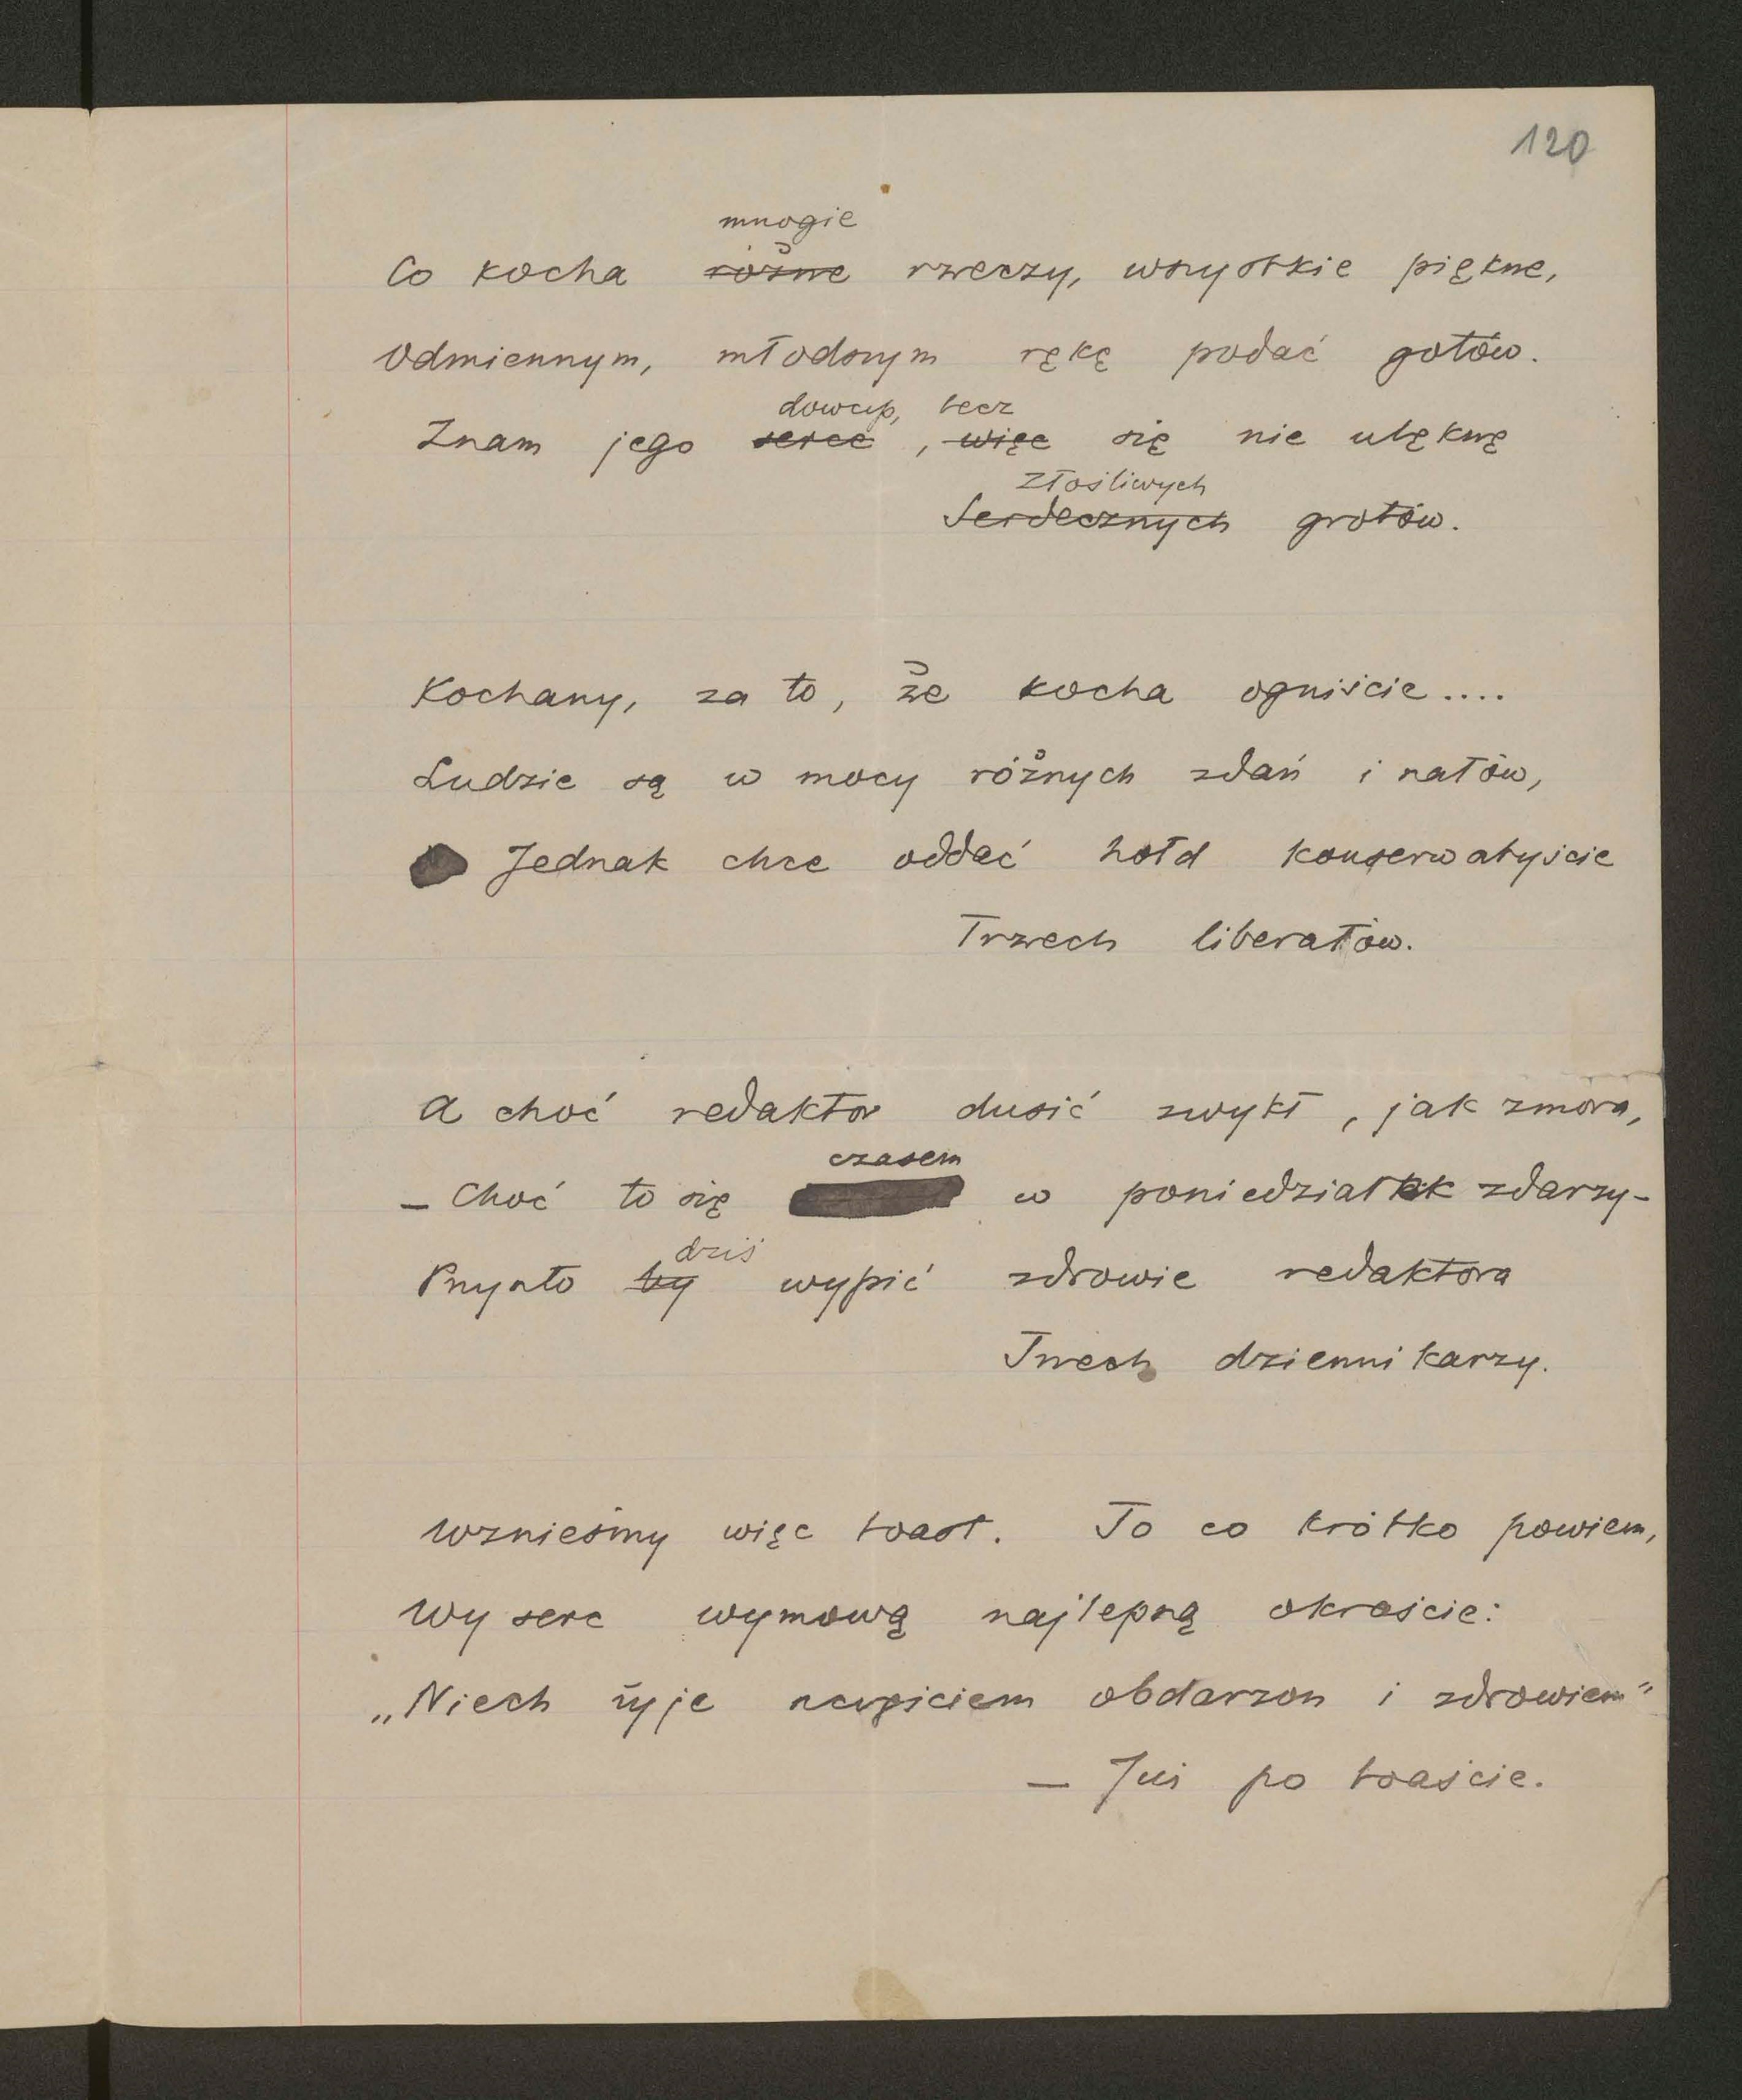 120
mnogie
Co kocha różne rzeczy, wszystkie piękne,
Odmiennym, młodszym rękę podać gotów.
dowcip, lecz
Znam jego serce, więc się nie ulęknę
złośliwych
Serdecznych grotów.
Kochany, za to, że kocha ogniście....
Ludzie są w mocy różnych zdań i szałów,
Jednak chce oddać hołd konserwatyście
Trzech liberałów.
A choć redaktor dusić zwykł, jak zmora,
czasem
– Choć to się w poniedziałek zdarzy –
dziś
Przyszło by wypić zdrowie redaktora
Trzech dziennikarzy.
Wznieśmy więc toast. To co krótko powiem,
Wy serc wymową najlepszą okraście:
„Niech żyje szczęściem obdarzon i zdrowiem"
– Już po toaście.